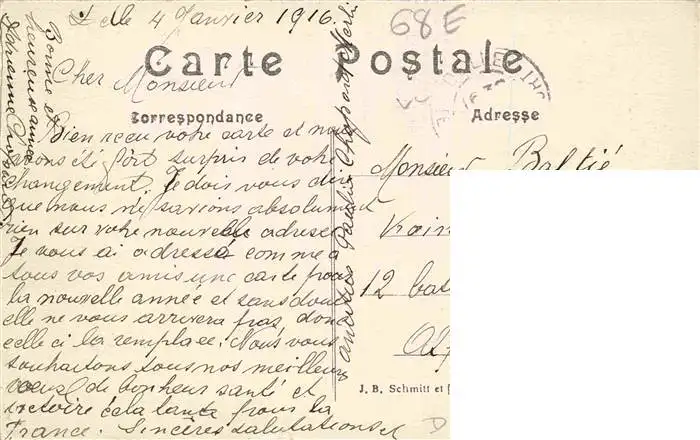 Delle 4 Janvier 1916.
68 E
Carte Postale
Cher Monsieur
Correspondance
Adresse
Bien reçu votre carte et nous
avons été fort surpris de votre
changement. Je dois vous dire
que nous ne savions absolument
rien sur votre nouvelle adresse
Je vous ai adressé comme à
tous vos amis une carte pour
la nouvelle année et sans doute
elle ne vous arrivera pas, donc
celle ci la remplace. Nous vous
souhaitons tous nos meilleurs
voeux de bonheur santé et
victoire cela tout pour la
France. Sincères salutations et
Bonne et
heureuse année
Monsieur Baltié
12 bat
J. B. Schmitt et
D